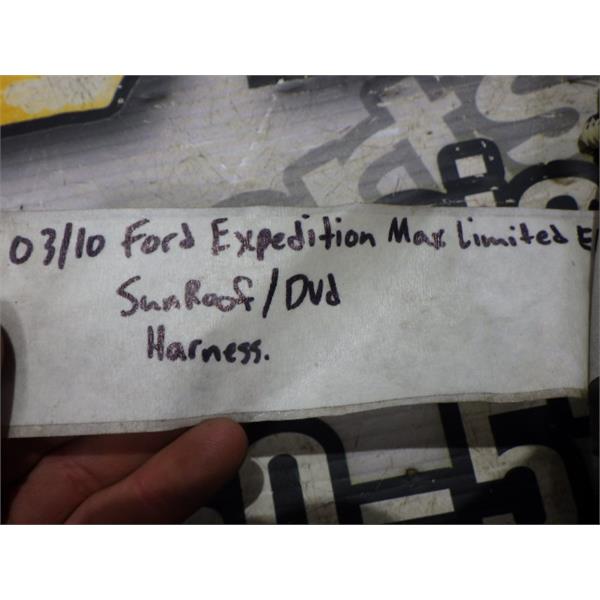 03/10 Ford Expedition Max Limited E
SunRoof/DVd
Harness.